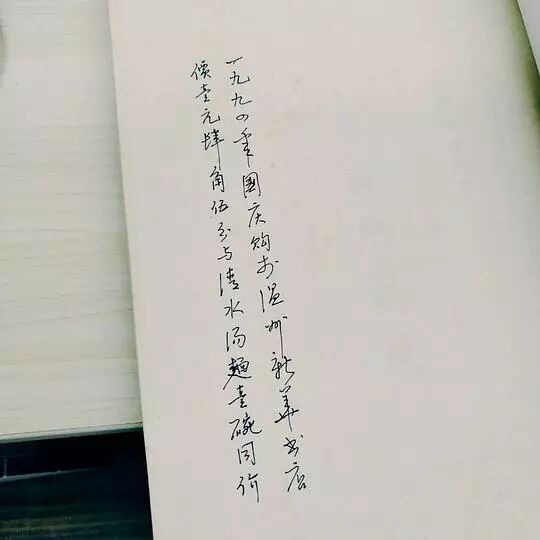 一九九四年國庆购于温州新华书店
價壹元肆角伍分与清水汤麵壹碗同价